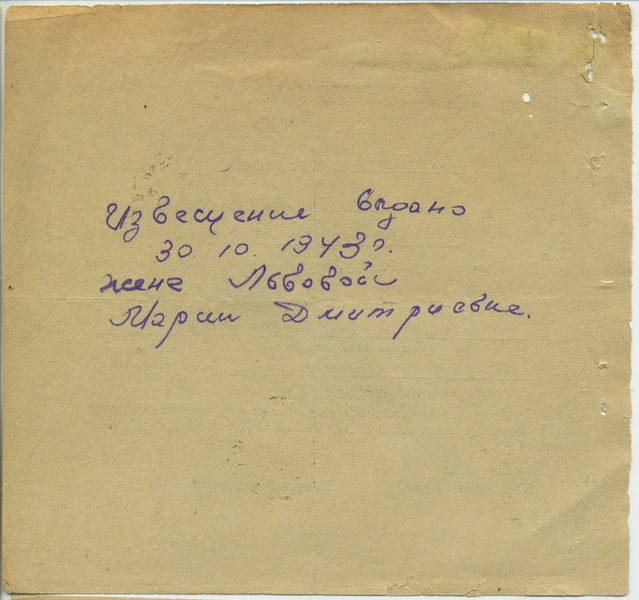 Извещение выдано
30. 10. 1943 г.
жене Львовой
Марии Дмитриевне.